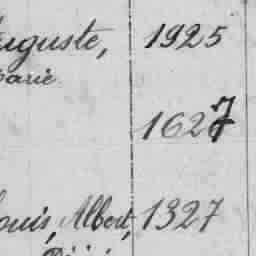 Auguste, 1925
Marie
1627
Louis, Albert, 1327